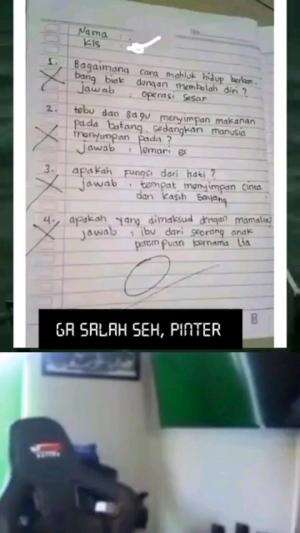 Nama :
Kls
1. Bagaimana cara mahluk hidup berkem-
bang biak dengan membelah diri ?
Jawab : operasi sesar
2. tebu dan sagu menyimpan makanan
pada batang, sedangkan manusia
menyimpan pada ?
Jawab : lemari es
3. apakah fungsi dari hati ?
Jawab : tempat menyimpan cinta
dan kasih sayang
4. apakah yang dimaksud dengan mamalia
Jawab : ibu dari seorang anak
perempuan bernama lia
GA SALAH SEH, PINTER